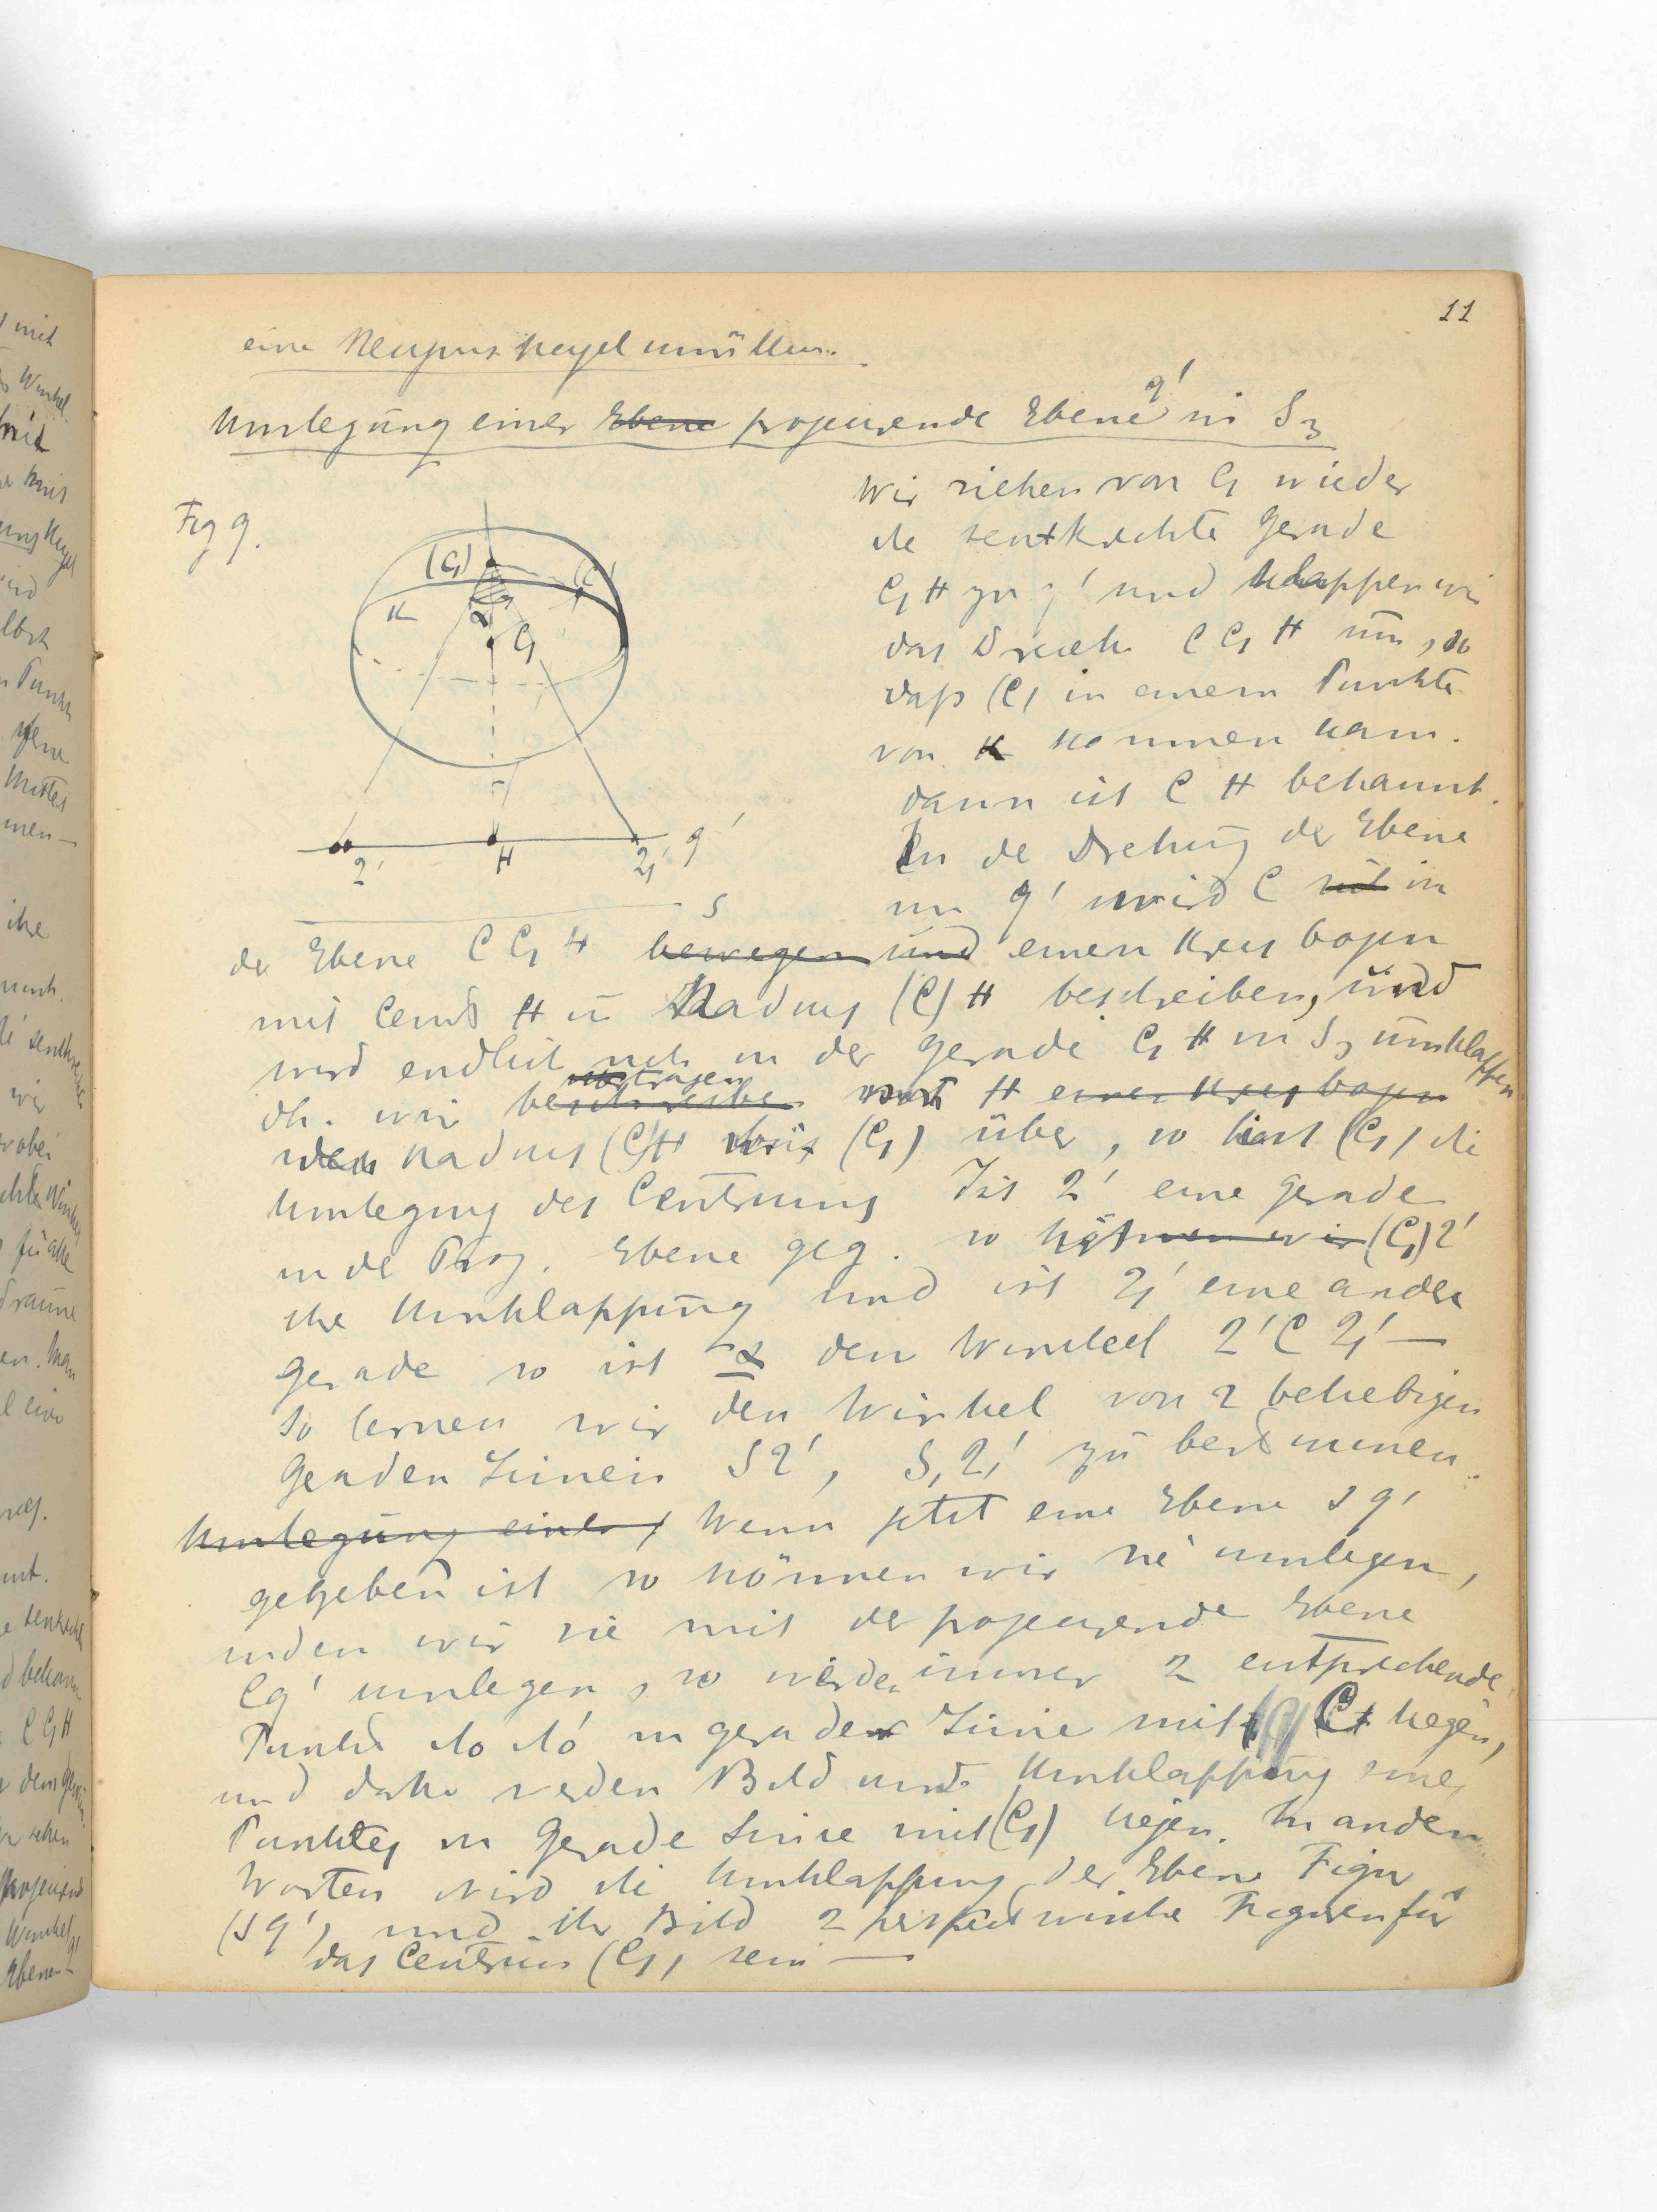 11
eine Neigungskegel umüllen.
Umlegung einer Ebene projecirende Ebene g' in S3
Fig 9.
(C1)
(C)
K
α
C1
2'
H
21'
g'
S
Wir ziehen von C1 wieder
die senkrechte Gerade
C1 H zu g' und klappen wir
das Dreieck C C1 H um, so
daß (C) in einem Punkte
von K kommen kann.
dann ist C H bekannt.
In de Drehung der Ebene
um g' wird C in
der Ebene C C1 H bewegen und einen Kreisbogen
mit Centr H u Radius (C) H beschreiben, und
wird endlich sich in der Gerade C1 H in S3 umklappen
dh. wir beschreiben H einen Kreisbogen
den Radius (C)H (C1) über, so (C1) die
Umlegung des Centrums Ist 2' eine Gerade
in de Proj. Ebene geg. so (C1)2'
ihre Umklappung und ist 21' eine andere
Gerade so ist α den Winkel 2' C 21' —
So lernen wir den Winkel von 2 beliebigen
Geraden Linien S2', S1 21' zu bestimmen.
Umlegung einer Wenn jetzt eine Ebene s g'
gegeben ist so können wir sie umlegen,
indem wir sie mit der projecirende Ebene
C g' umlegen, so werden immer 2 entsprechende
Punkte in gerader Linie mit C liegen,
und daher werden Bild und Umklappung eines
Punktes in Gerade Linie mit (C1) liegen. In anderen
Worten wird die Umklappung der Ebene Figur
(s g') und ihr Bild 2 perspectivische Figuren für
das Centrum (C1) sein —